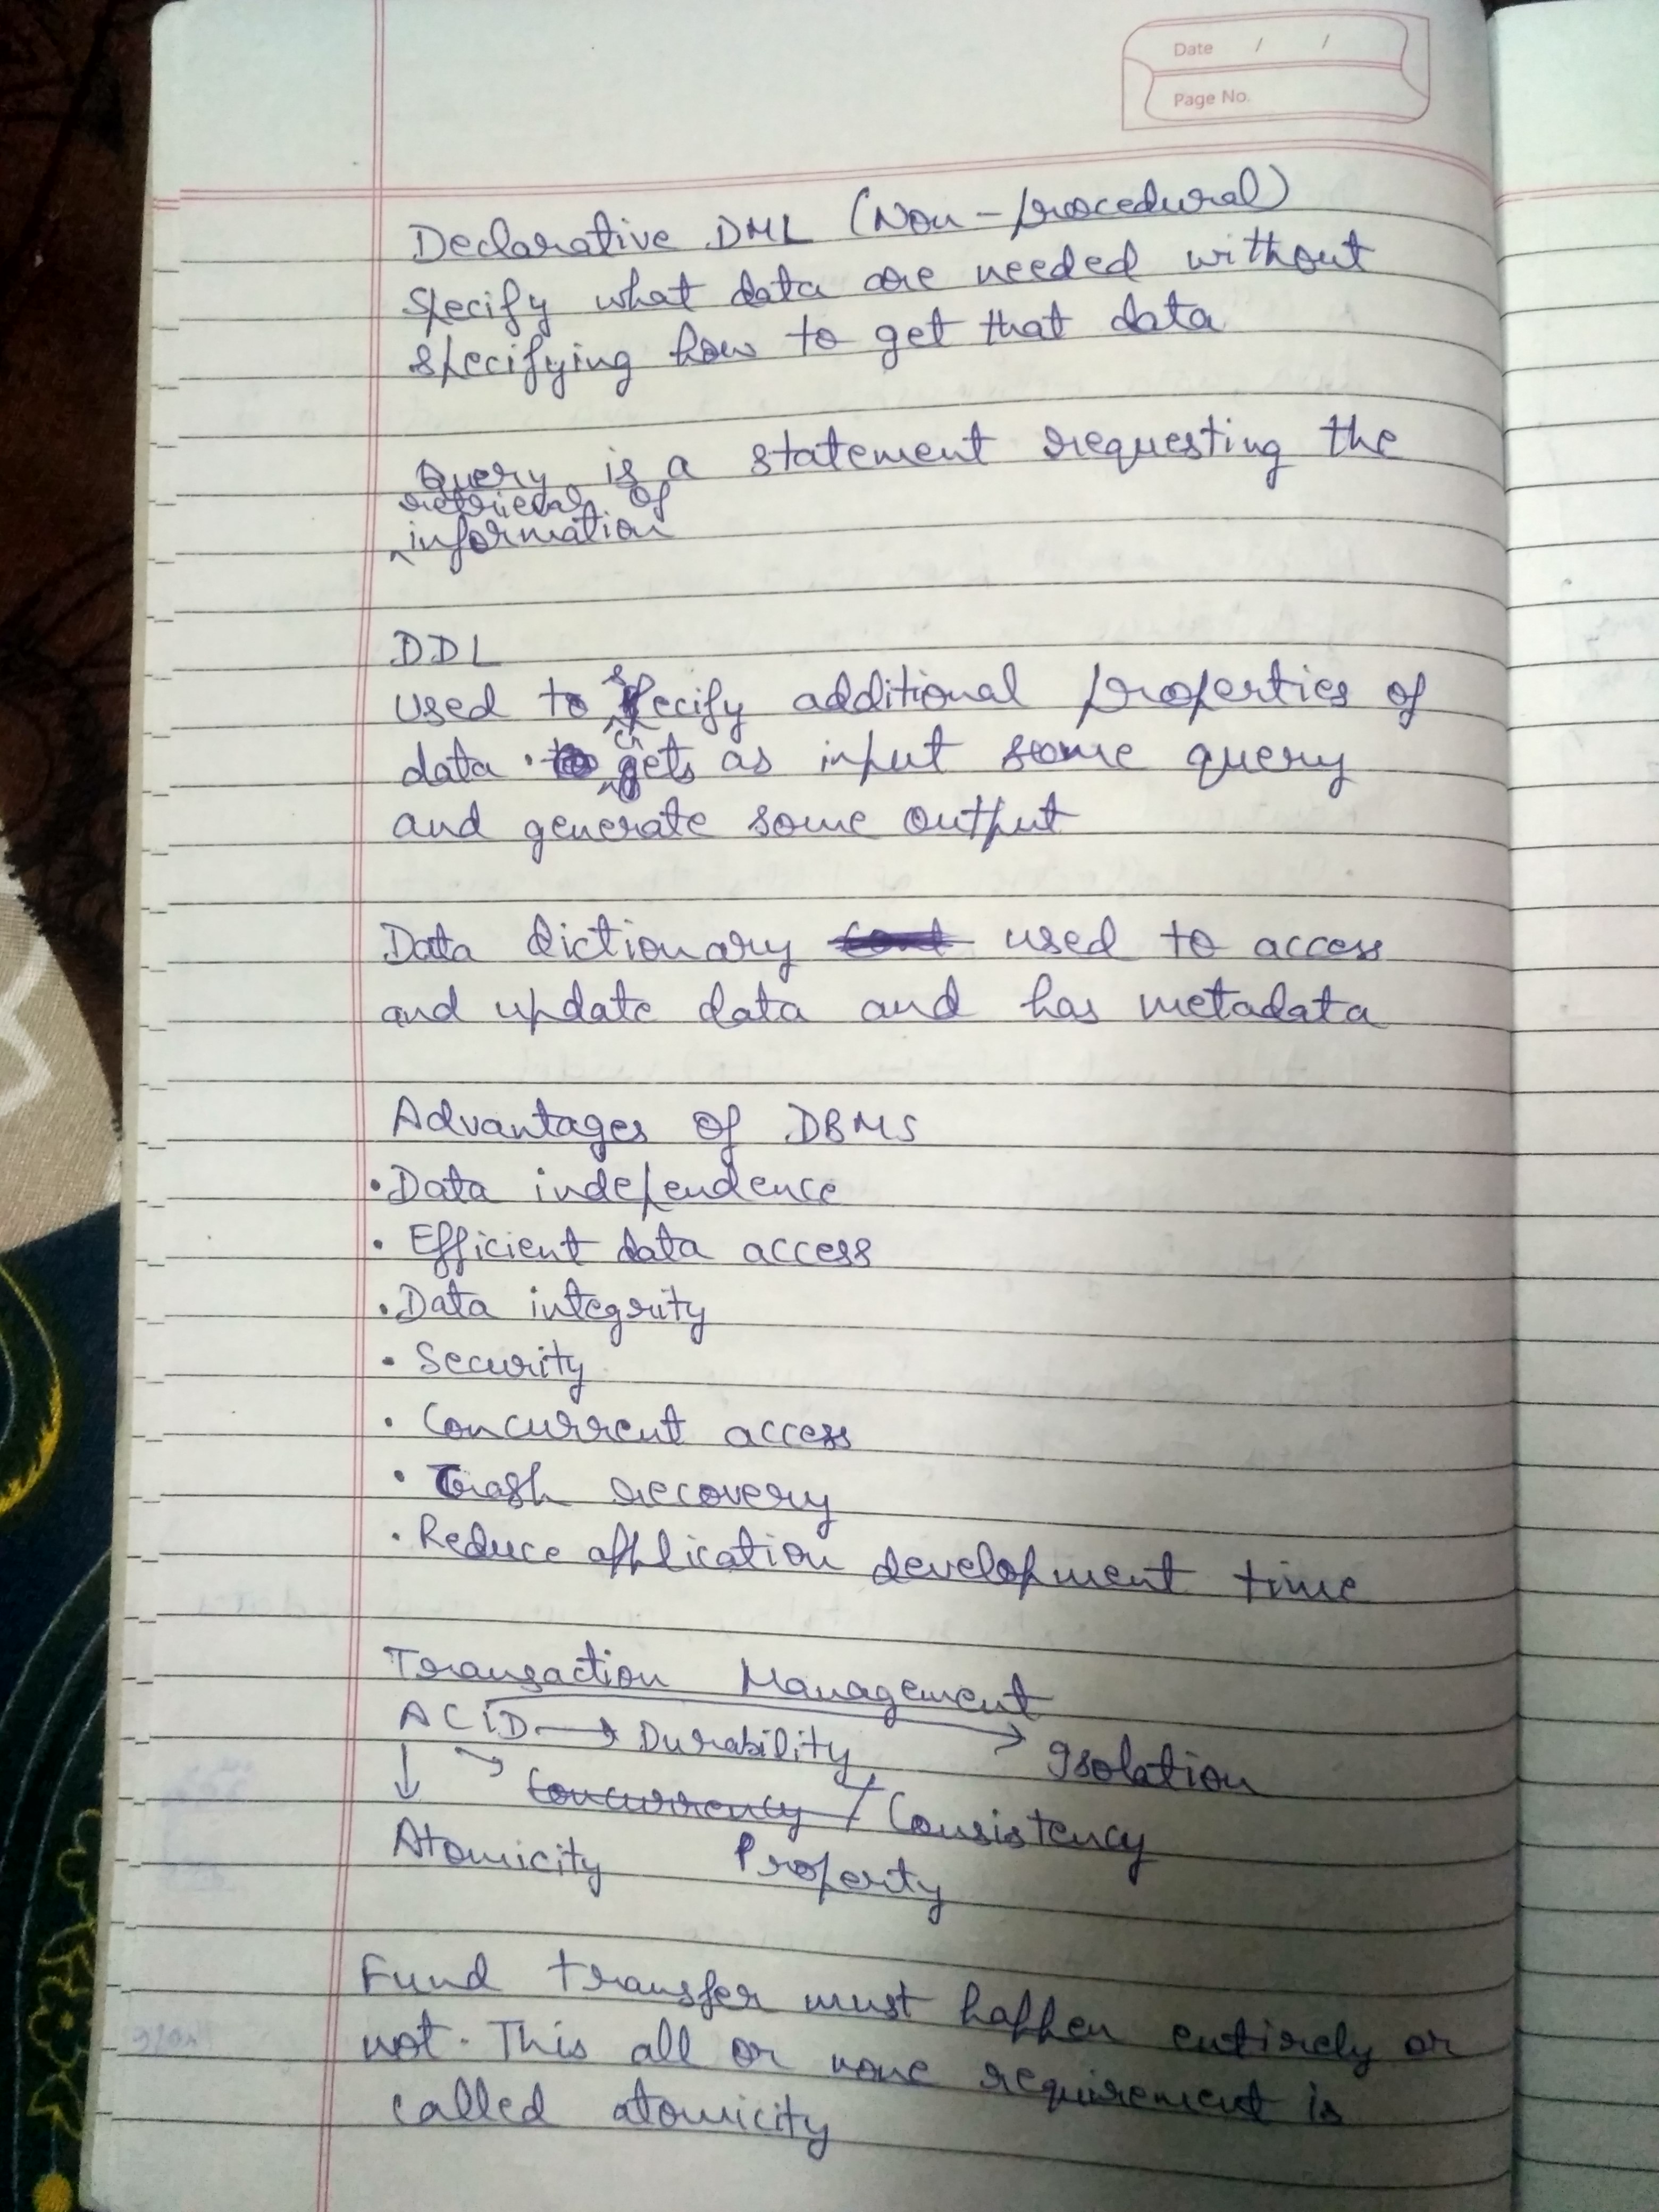 Date / /
Page No.
Declarative DML (Non-procedural)
Specify what data are needed without
specifying how to get that data
Query is a statement requesting the
retrieval of
information
DDL
Used to specify additional properties of
data. It gets as input some query
and generate some output
Data dictionary used to access
and update data and has metadata
Advantages of DBMS
• Data independence
• Efficient data access
• Data integrity
• Security
• Concurrent access
• Crash recovery
• Reduce application development time
Transaction Management
ACID → Durability → Isolation
Concurrency / Consistency
Atomicity Property
Fund transfer must happen entirely or
not. This all or none requirement is
called atomicity